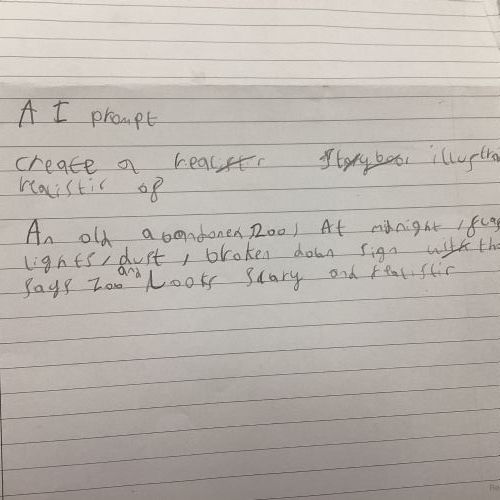 AI prompt
create a realistic storyboo illustra
realistic of
An old abandoned zoo, At midnight, 
lights, dust, broken down sign with tha
says zoo and Looks scary and realistic